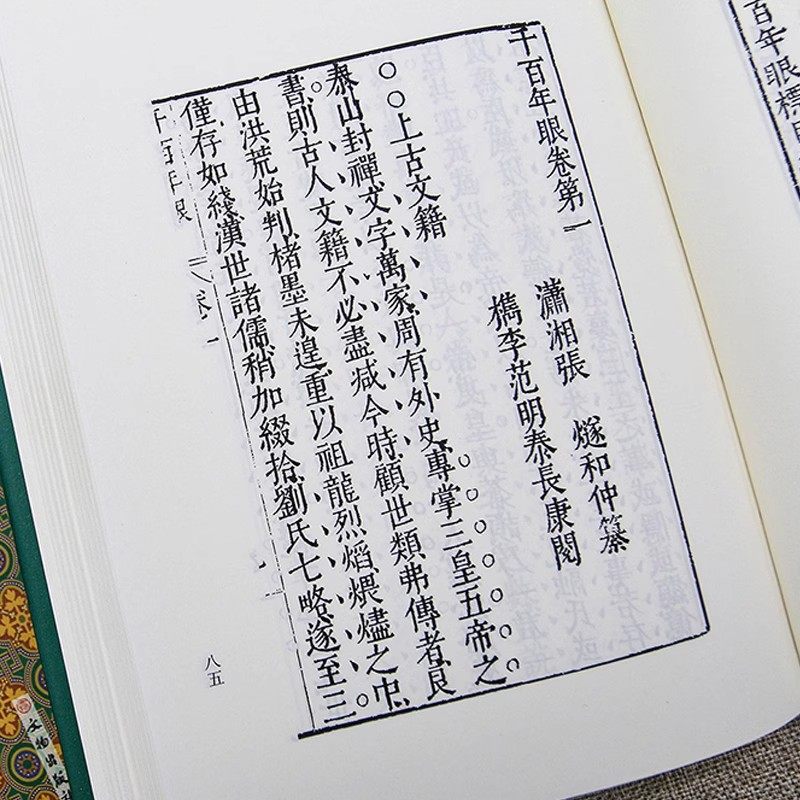 百年眼標
千百年眼卷第一
瀟湘張 燧和仲纂
檇李范明泰長康閱
○○上古文籍
泰山封禪文字萬家周有外史專掌三皇五帝之
書則古人文籍不必盡减今時顧世類弗傳者良
由洪荒始判楮墨未遑重以祖龍烈焰煨燼之中
僅存如綫漢世諸儒稍加綴拾劉氏七略遂至三
千百年眼 卷一
八五
文物出版